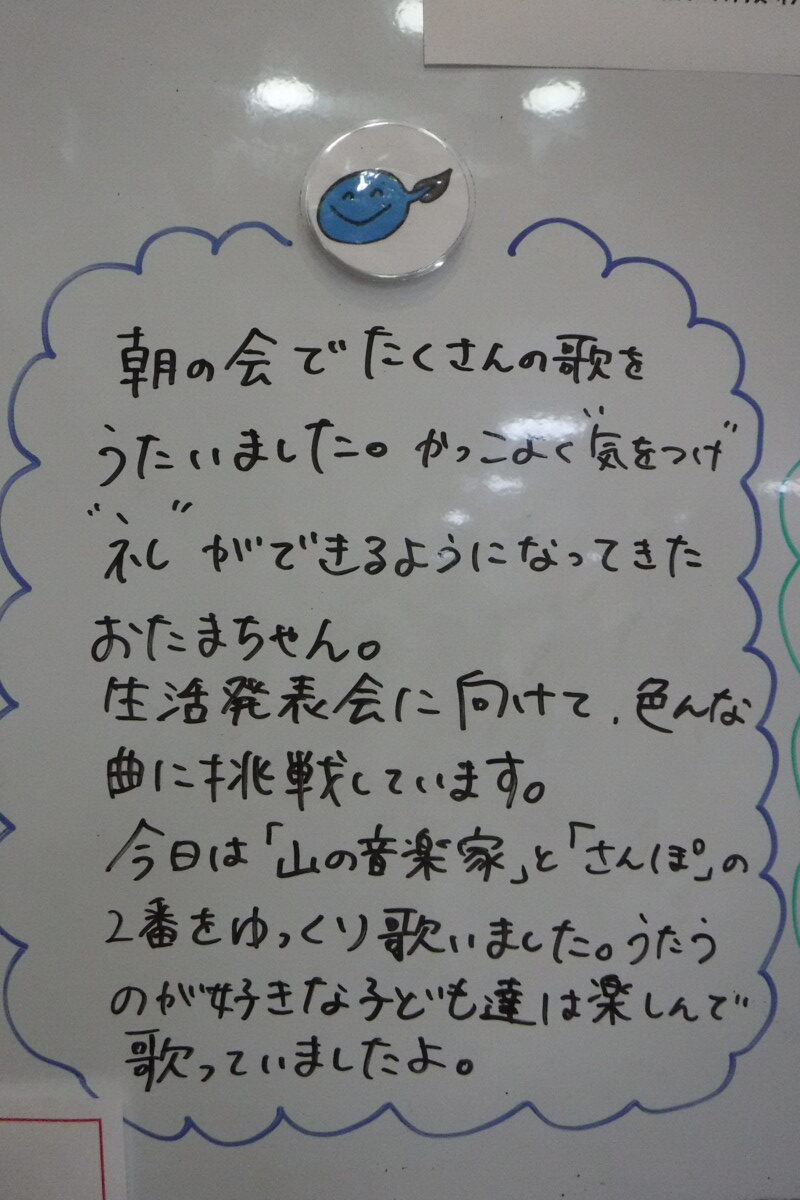 朝の会でたくさんの歌を
うたいました。かっこよく"気をつけ"
"礼"ができるようになってきた
おたまちゃん。
生活発表会に向けて、色んな
曲に挑戦しています。
今日は「山の音楽家」と「さんぽ」の
2番をゆっくり歌いました。うたう
のが好きな子ども達は楽しんで
歌っていましたよ。